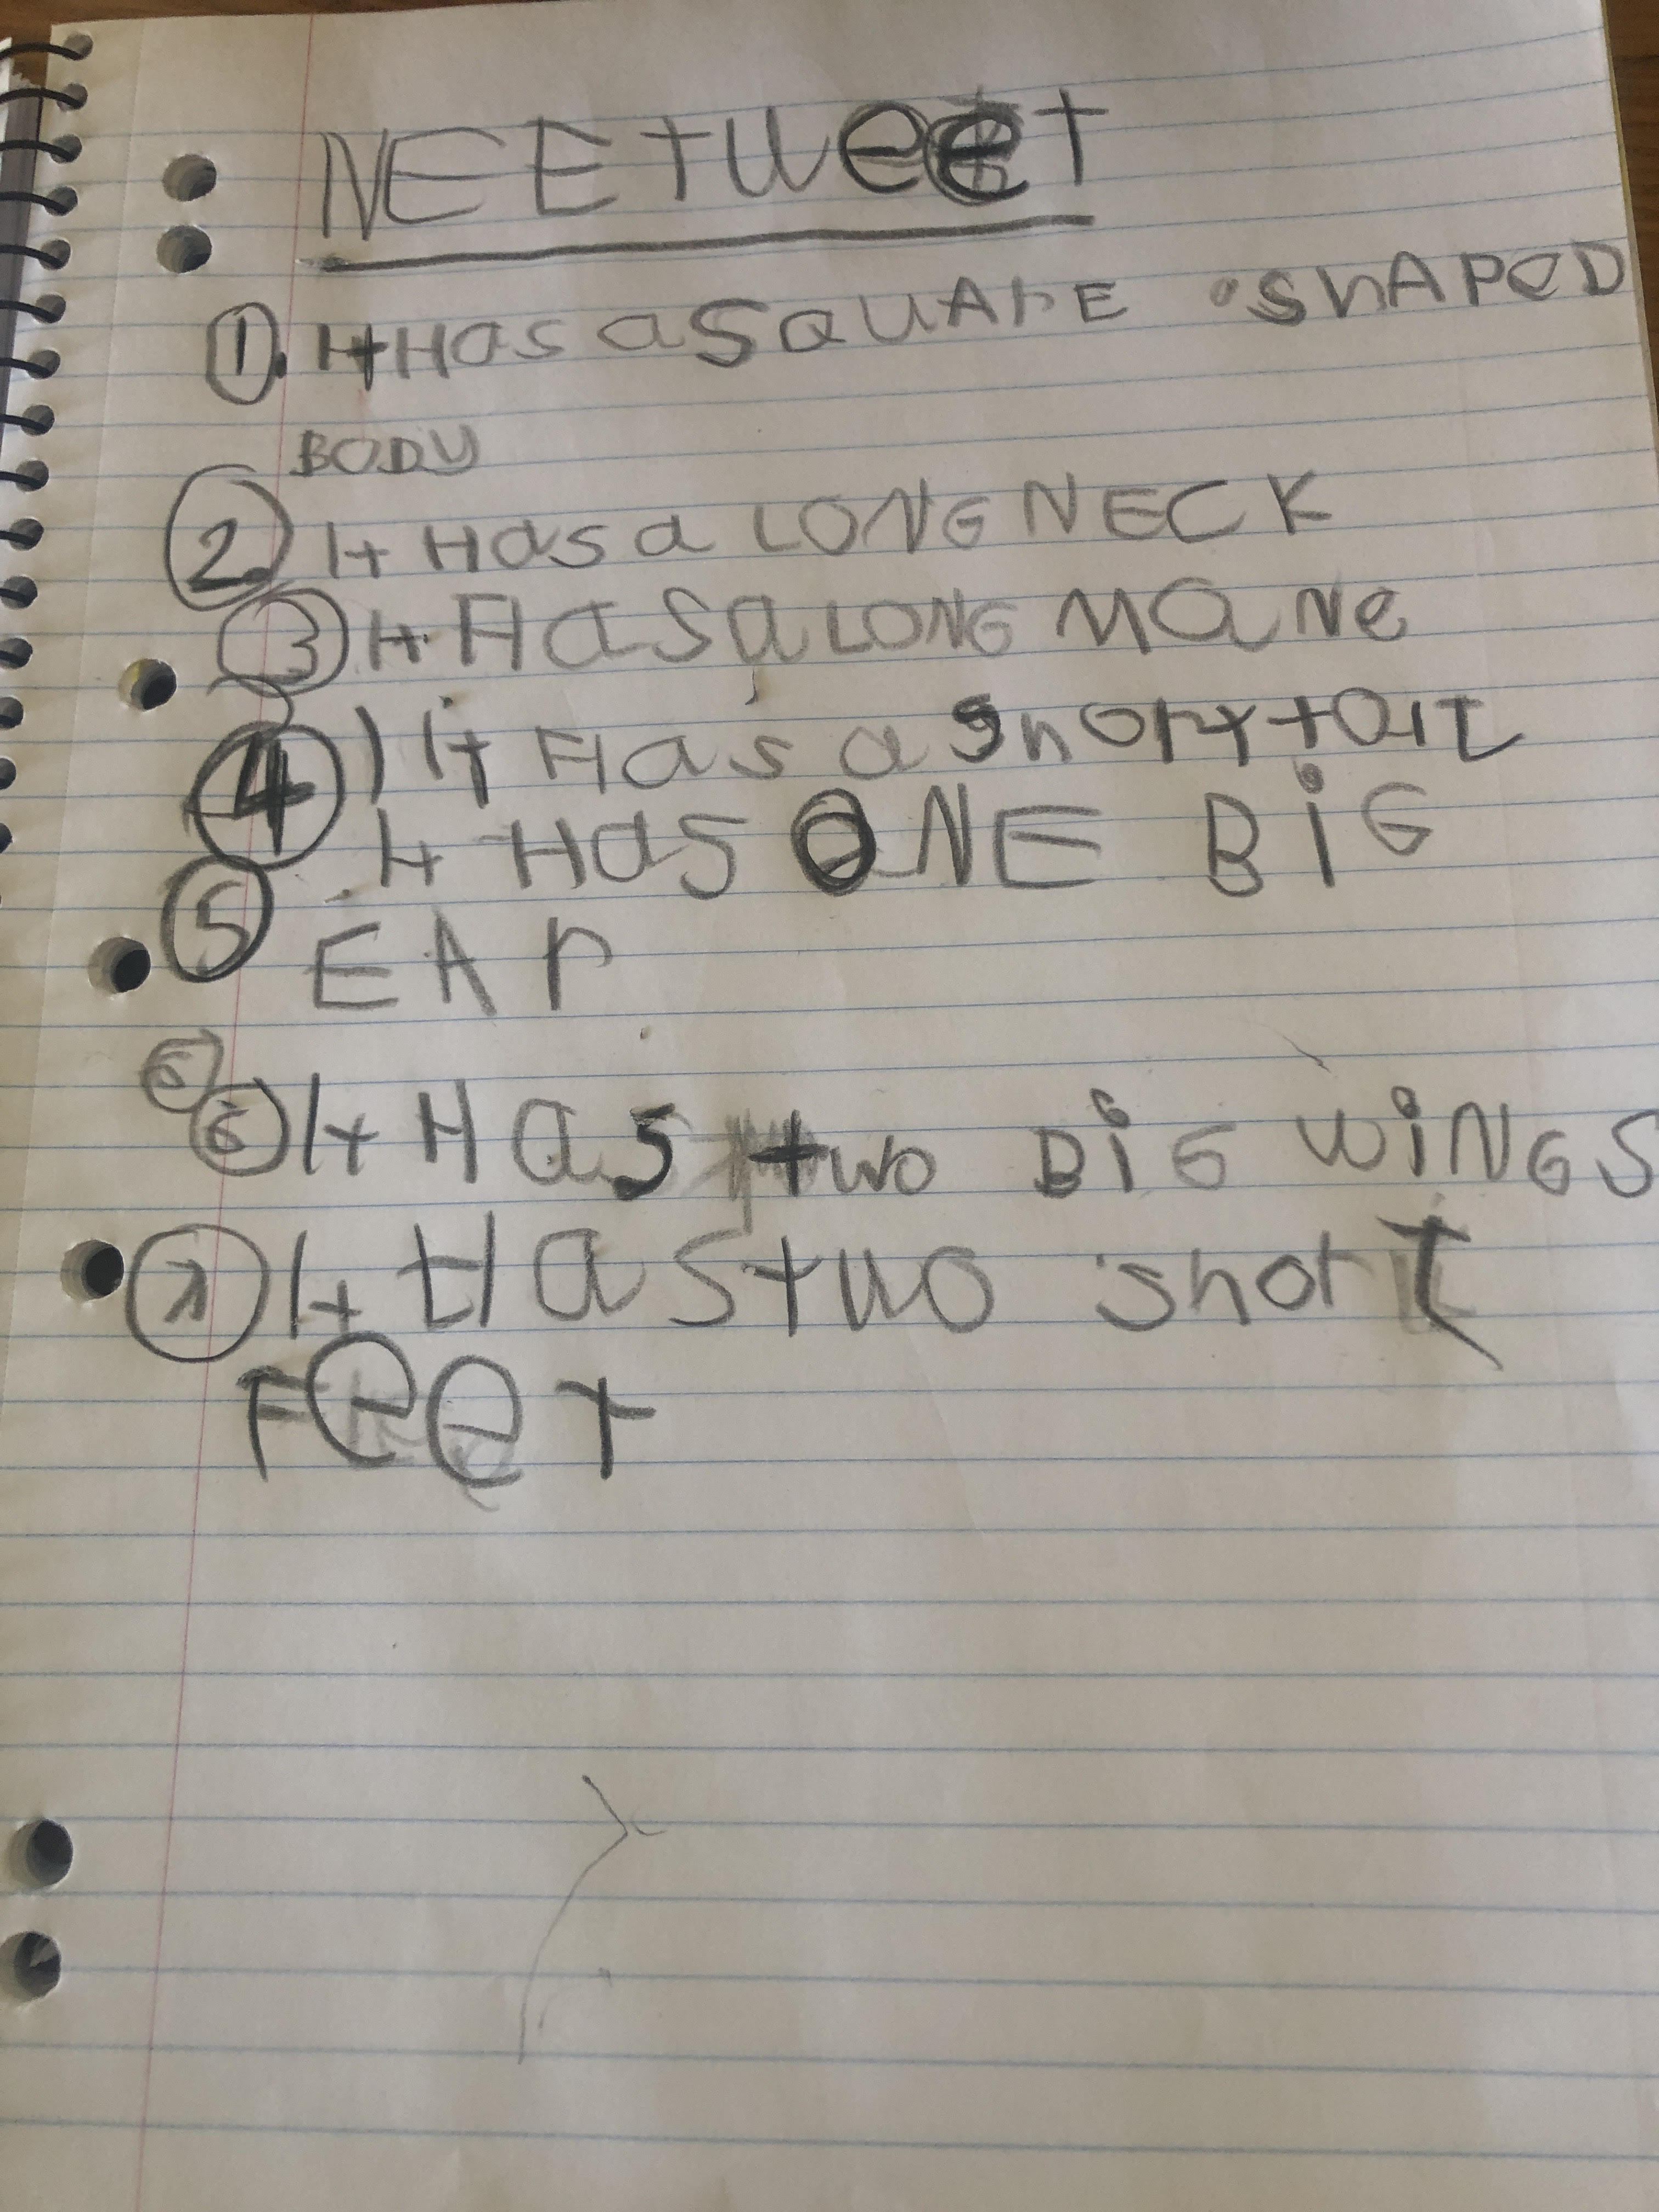 NEEtweet
1. It Has a SQUArE SHAPED
BODY
2. It Has a LONG NECK
3 It Has a LONG MaNe
4) It Has a short taiL
5 It Has ONE BiG
EAr
5
6 It Has two BiG WiNGS
7 It Has two short
Feet